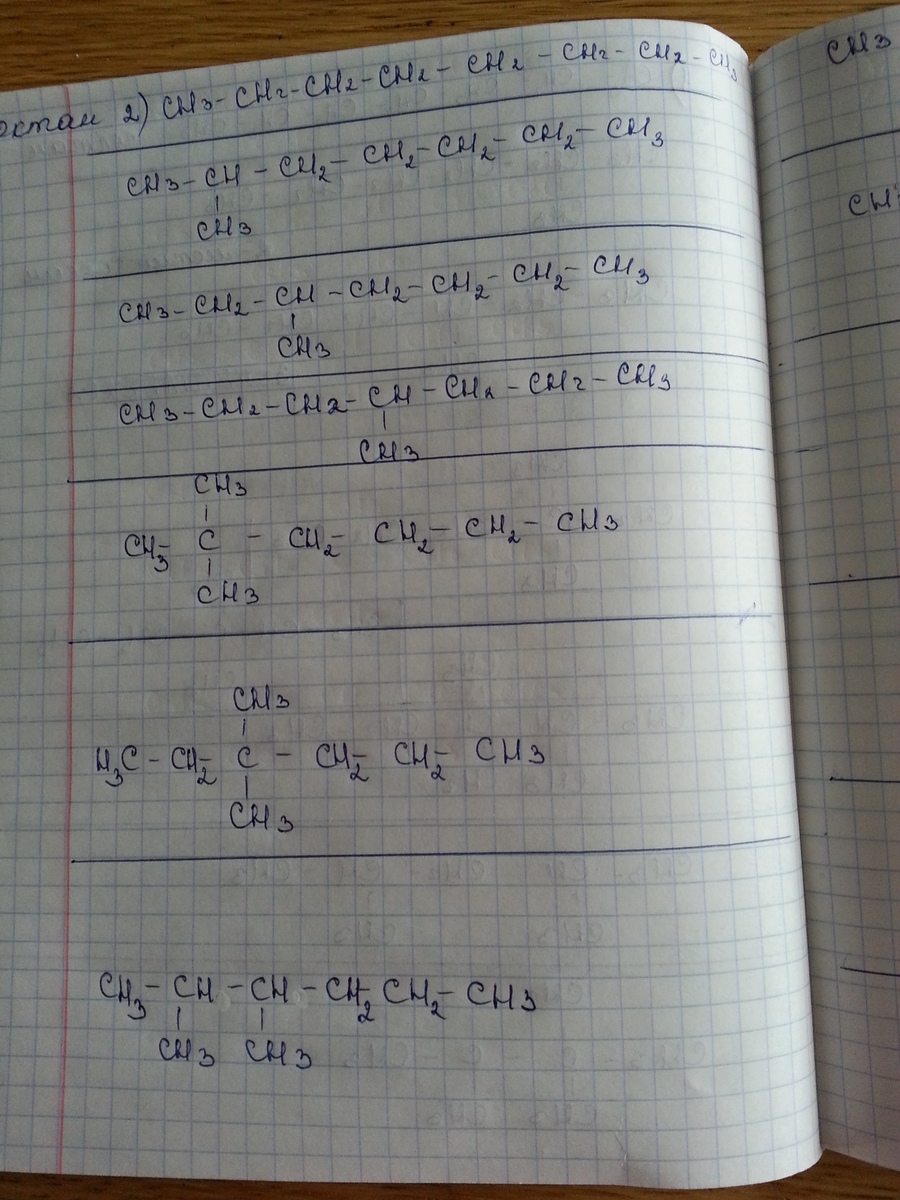 октан 2) CH3-CH2-CH2-CH2-CH2-CH2-CH2-CH3
CH3-CH-CH2-CH2-CH2-CH2-CH3
CH3
CH3-CH2-CH-CH2-CH2-CH2-CH3
CH3
CH3-CH2-CH2-CH-CH2-CH2-CH3
CH3
CH3
CH3- C - CH2- CH2- CH2- CH3
CH3
CH3
H3C - CH2- C - CH2- CH2- CH3
CH3
CH3-CH-CH-CH2-CH2-CH3
CH3 CH3
CH3
CH